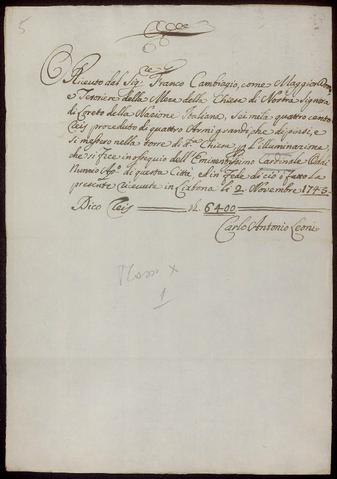 5
Riceuto dal Sig.r Franco Cambiagio, come Maggior Domo
e Tesoriere della Mesa della Chiesa di Nostra Signora
di Loreto della Nazione Italiana, Sei mila quatro cento
Reis proceduto di quatro Armi grandi, che dipinsi, e
si messero nella torre di d.a Chiesa p l'illuminazione,
che si fece in ossequio dell'Eminentissimo Cardinale Odai
Nunzio Ap.o di questa Città, et in fede di ciò o fato la
presente riceuute in Lisbona li 2 Novembre 1743
Dico Reis 6400
Carlo Antonio Leoni
x
1